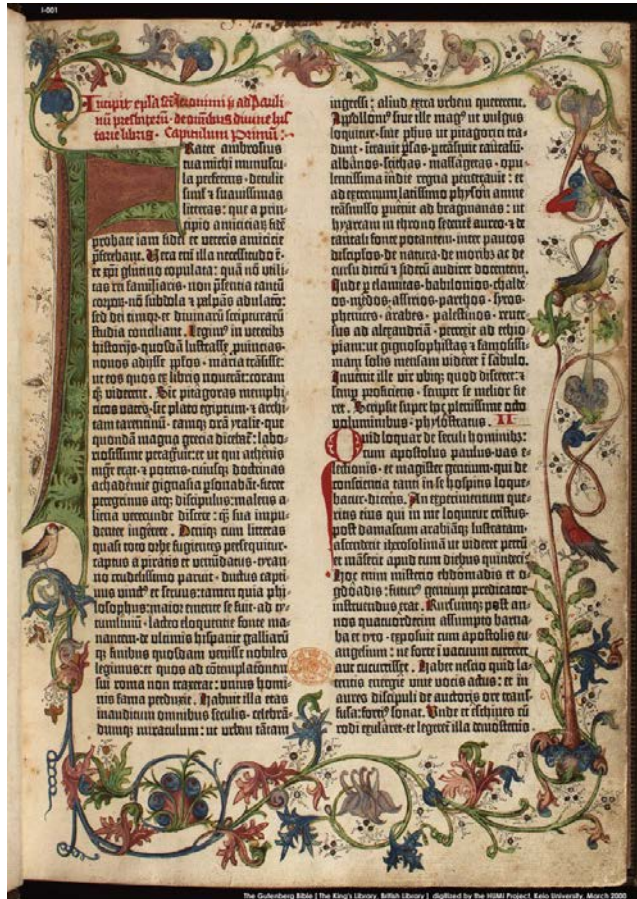 I-001
Incipit epistola sancti Jeronimi ad Pauli-
nũ presbiterũ · de omnibus divine his-
torie libris · Capitulum Primũ :
Frater ambrosius
tua michi munuscu-
la perferens · detulit
simĺ et suavissimas
litteras: que a prin-
cipio amiciciaꝝ fidẽ
probate iam fidei et veteris amicicie
p̃ferebant. Vera eñ illa necessitudo ẽ·
et xp̃i glutino copulata: quã nõ utili-
tas rei familiaris·non p̃sentia tantũ
corpoꝝ·nõ subdola et palpãs adulaco:
sed dei timor·et divinaꝝ scripturarũ
studia conciliant. Legimꝰ in veteribꝫ
historijs·quosdã lustrasse p̃vincias·
novos adijsse ppl̃os·maria trãsisse:
ut eos quos ex libris noverãt:coram
qꝫ viderent. Sic pitagoras memphi-
ticos vates·sic plato egiptum·et archi-
tam tarentinũ·eamqꝫ orã ytalie·que
quondã magna grecia dicebat̃: labo-
riosissime peragravit:et ut qui athenis
mgr̃ erat·et potens·cuiusqꝫ doctrinas
achademie gignasia p̃sonabãt·fieret
peregrinus atqꝫ discipulus:malens a-
liena verecunde discere:qꝫ sua impu-
denter ingerere. Deniqꝫ cum litteras
quasi toto orbe fugientes persequitur·
captus a piratis et venundatus·tyran-
no crudelissimo paruit·ductus capti-
vus vinctꝰ et servus:tamen quia phi-
losophus:maior emente se fuit·ad ty-
tumlivium·lacteo eloquentie fonte ma-
nantem·de ultimis hispanie galliarũ
qꝫ finibus quosdam venisse nobiles
legimus:et quos ad cõtemplaõnem
sui roma non traxerat:unius homi-
nis fama perduxit. Habuit illa etas
inauditum omnibus seculis·celebrã-
dumqꝫ miraculum:ut urbem tãtam
ingressi: aliud extra urbem quererent.
Apolloniꝰ sive ille magꝰ ut vulgus
loquitur·sive phus ut pitagorici tra-
dunt·intravit p̃sas·p̃trãsivit caucasũ
albanos·scithas·massagetas·opu-
lentissima indie regna penetravit: et
ad extremum latissimo physon amne
trãsmisso p̃venit ad bragmanas: ut
hyarcam in throno sedentẽ aureo·et de
tantali fonte potantem·inter paucos
discipl̃os·de natura·de moribꝫ ac de
cursu dierũ et siderũ audiret docentem.
Inde p̃ elamitas·babilonios·chalde-
os·medos·assirios·parthos·syros·
phenices·arabes·palestinos·rever-
sus ad alexandriã· perrexit ad ethio-
piam: ut gignosophistas et famosissi-
mam solis mensam videret ĩ sabulo.
Invenit ille vir ubiqꝫ quod disceret: et
semp̃ proficiens·semper se melior fie-
ret. Scripsit super hoc plenissime octo
voluminibus·phylostratus. II
Quid loquar de seculi hominibꝫ:
cum apostolus paulus·vas e-
lectionis·et magister gentium·qui de
conscientia tanti in se hospitis loque-
batur·dicens. An experimentum que-
ritis eius qui in me loquitur cristus·
post damascum arabiãqꝫ lustratam·
ascenderit iherosolimã ut videret petrũ
et mãserit apud eum diebus quindecĩ·
Hoc enim misterio ebdomadis et o-
gdoadis: futurꝰ gentium predicator
instruendus erat. Rursumqꝫ post an-
nos quatuordecim assumpto barna-
ba et tyto·exposuit cum apostolis eu-
angelium:ne forte ĩ vacuum curreret
aut cucurrisset. Habet nescio quid la-
tentis energie vive vocis actus: et in
aures discipuli de auctoris ore trans-
fusa:fortiꝰ sonat. Unde et eschines cũ
rodi exularet·et legeret̃ illa demosteniõ
The Gutenberg Bible [ The King's Library, British Library ] digitized by the HUMI Project, Keio University, March 2000